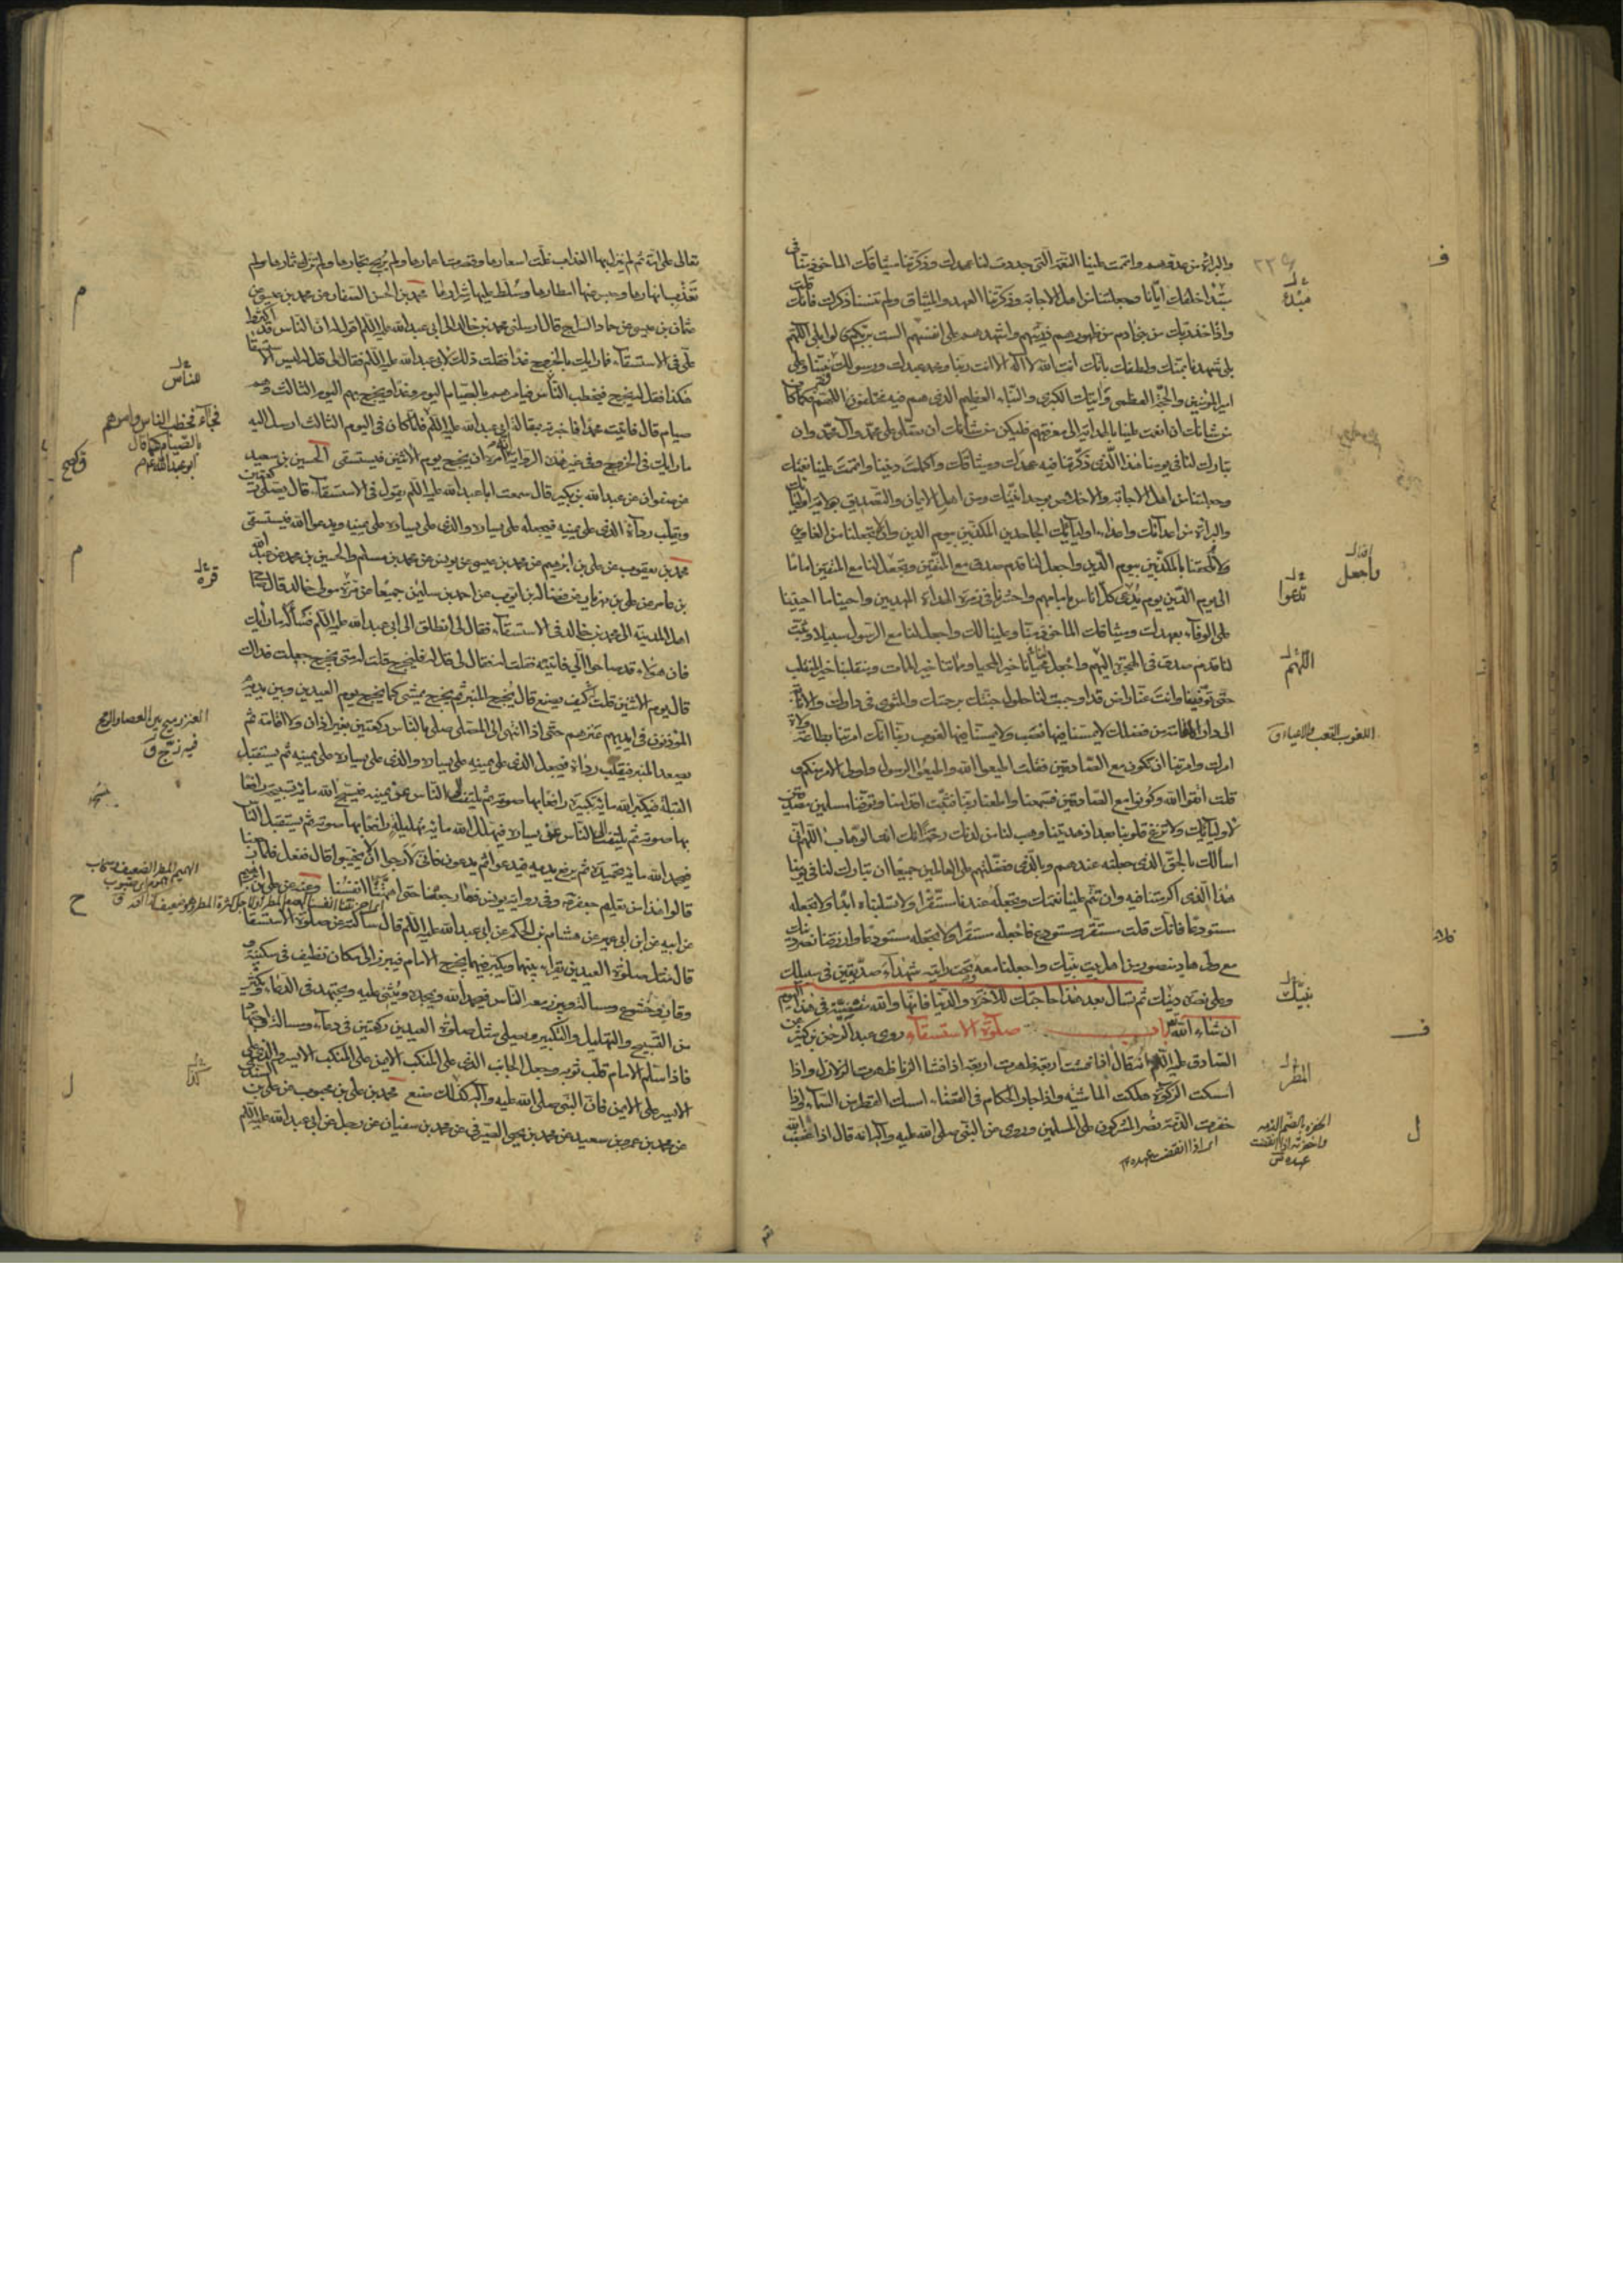 والبراءة من عدوهم واتممت علينا النعمة التي جددت لنا عهدك وذكرتنا ميثاقك المأخوذ منا في
مبتدأ خلقك ايانا وجعلتنا من اهل الاجابة وذكرتنا العهد والميثاق ولم تنسنا ذكرك فانك قلت
واذ اخذ ربك من بني آدم من ظهورهم ذريتهم واشهدهم على انفسهم الست بربكم قالوا بلى اللهم
بلى شهدنا بمنك ولطفك بانك انت الله لا اله الا انت ربنا ومحمد عبدك ورسولك نبينا وعلى
امير المؤمنين والحجة العظمى وآيتك الكبرى والنباء العظيم الذي هم فيه مختلفون اللهم فكما كان
من شانك ان انعمت علينا بالهداية الى معرفتهم فليكن من شانك ان تصلى على محمد وآل محمد وان
تبارك لنا في يومنا هذا الذي ذكرتنا فيه عهدك وميثاقك واكملت ديننا واتممت علينا نعمتك
وجعلتنا من اهل الاجابة والاخلاص بوحدانيتك ومن اهل الايمان والتصديق بولاية اوليائك
والبراءة من اعدائك واعداء اوليائك الجاحدين المكذبين بيوم الدين وان لا تجعلنا من الغاوين
ولا تلحقنا بالمكذبين بيوم الدين واجعل لنا قدم صدق مع المتقين وتجعل لنا مع المتقين اماما
الى يوم الدين يوم يدعى كل اناس بامامهم واحشرنا في زمرة الهداة المهديين واحينا ما احييتنا
على الوفاء بعهدك وميثاقك المأخوذ منا وعلينا لك واجعل لنا مع الرسول سبيلا وثبت
لنا قدم صدق في الهجرة اليهم واجعل محيانا خير المحيا ومماتنا خير الممات ومنقلبنا خير المنقلب
حتى توفينا وانت عنا راض قد اوجبت لنا حلول جنتك برحمتك والمثوى في دارك والانابة
الى دار المقامة من فضلك لا يمسنا فيها نصب ولا يمسنا فيها لغوب ربنا انك امرتنا بطاعة ولاة
امرك وامرتنا ان نكون مع الصادقين فقلت اطيعوا الله واطيعوا الرسول واولى الامر منكم و
قلت اتقوا الله وكونوا مع الصادقين فسمعنا واطعنا ربنا فثبت اقدامنا وتوفنا مسلمين مصدقين
لاوليائك ولا تزغ قلوبنا بعد اذ هديتنا وهب لنا من لدنك رحمة انك انت الوهاب اللهم اني
اسألك بالحق الذي جعلته عندهم وبالذي فضلتهم على العالمين جميعا ان تبارك لنا في يومنا
هذا الذي اكرمتنا فيه وان تتم علينا نعمتك وتجعله عندنا مستقرا ولا تسلبناه ابدا ولا تجعله
مستودعا فانك قلت مستقر ومستودع فاجعله مستقرا ولا تجعله مستودعا وارزقنا نصر دينك
مع ولى هاد منصور من اهل بيت نبيك واجعلنا معه وتحت رايته شهداء صديقين في سبيلك
وعلى نصرة دينك ثم تسأل بعد هذا حاجتك للآخرة والدنيا فانها والله مقضية في هذا اليوم
ان شاء الله باب صلوة الاستسقاء روى عبد الرحمن بن كثير عن
الصادق عليه السلم انه قال اذا فشت اربعة ظهرت اربعة اذا فشا الزنا ظهرت الزلازل واذا
امسكت الزكوة هلكت الماشية واذا جار الحكام في القضاء امسك القطر من السماء واذا
خفرت الذمة نصر المشركون على المسلمين وروى عن النبي صلى الله عليه وآله انه قال اذا غضب الله
اى اذا انقضت عهده
مبدء
واجعل
تدعوا
اللهم
اللغوب التعب والاعياء ق
نبيك
المطر
تعالى على امة ثم لم ينزل بها العذاب غلت اسعارها وقصرت اعمارها ولم تربح تجارها ولم تزك ثمارها ولم
تغذب انهارها وحبس عنها امطارها وسلط عليها شرارها محمد بن الحسن الصفار عن محمد بن عيسى عن
عثمان بن عيسى عن حماد السراج قال ارسلني محمد بن خالد الى ابى عبد الله عليه السلم اقول له ان الناس قد اكثروا
على في الاستسقاء فما رأيك بالخروج غدا فقلت ذلك لابى عبد الله عليه السلم فقال لى قل له ليس الاستسقا
هكذا فقل له يخرج فيخطب الناس فيأمرهم بالصيام اليوم وغدا ويخرج بهم اليوم الثالث وهم
صيام قال فاتيت محمدا فاخبرته بمقالة ابى عبد الله عليه السلم فلما كان في اليوم الثالث ارسل اليه
ما رأيك في الخروج وفي غير هذه الرواية انه امره ان يخرج يوم الاثنين فيستسقى الحسين بن سعيد
عن صفوان عن عبد الله بن بكير قال سمعت ابا عبد الله عليه السلم يقول في الاستسقاء قال يصلى ركعتين
ويقلب رداءه الذي على يمينه فيجعله على يساره والذي على يساره على يمينه ويدعو الله فيستسقى
محمد بن يعقوب عن على بن ابرهيم عن محمد بن عيسى عن يونس عن محمد بن مسلم والحسين بن محمد عن عبد الله
بن عامر عن على بن مهزيار عن فضالة بن ايوب عن احمد بن سليمن جميعا عن مرة مولى خالد قال صاح
اهل المدينة الى محمد بن خالد في الاستسقاء فقال لى انطلق الى ابى عبد الله عليه السلم فسأله ما رأيك
فان هؤلاء قد صاحوا الى فاتيته فقلت له فقال لى قل له فليخرج قلت له متى يخرج جعلت فداك
قال يوم الاثنين قلت كيف يصنع قال يخرج المنبر ثم يخرج يمشى كما يخرج يوم العيدين وبين يديه
المؤذنون في ايديهم عنزهم حتى اذا انتهى الى المصلى صلى بالناس ركعتين بغير اذان ولا اقامة ثم
يصعد المنبر فيقلب رداءه فيجعل الذي على يمينه على يساره والذي على يساره على يمينه ثم يستقبل
القبلة فيكبر الله مائة تكبيرة رافعا بها صوته ثم يلتفت الى الناس عن يمينه فيسبح الله مائة تسبيحة رافعا
بها صوته ثم يلتفت الى الناس عن يساره فيهلل الله مائة تهليلة رافعا بها صوته ثم يستقبل الناس
فيحمد الله مائة تحميدة ثم يرفع يديه فيدعو ثم يدعون فانى لارجوا ان لا يخيبوا قال ففعل فلما رجعنا
قالوا هذا من تعليم جعفر وفي رواية يونس فما رجعنا حتى اهمتنا انفسنا وعنه عن على بن ابرهيم
عن ابيه عن ابن ابى عمير عن هشام بن الحكم عن ابى عبد الله عليه السلم قال سألته عن صلوة الاستسقا
قال مثل صلوة العيدين تقراء فيهما وتكبر فيهما يخرج الامام فيبرز الى مكان نظيف في سكينة
وقار وخشوع ومسألة ويبرز معه الناس فيحمد الله ويمجده ويثنى عليه ويجتهد في الدعاء ويكثر
من التسبيح والتهليل والتكبير ويصلى مثل صلوة العيدين ركعتين في دعاء ومسألة واجتهاد
فاذا سلم الامام قلب ثوبه وجعل الجانب الذي على المنكب الايمن على المنكب الايسر والذي على
الايسر على الايمن فان النبي صلى الله عليه وآله كذلك صنع محمد بن على بن محبوب عن على بن السندى
عن محمد بن عمرو بن سعيد عن محمد بن يحيى الصيرفي عن محمد بن سفيان عن رجل عن ابى عبد الله عليه السلم
قرة